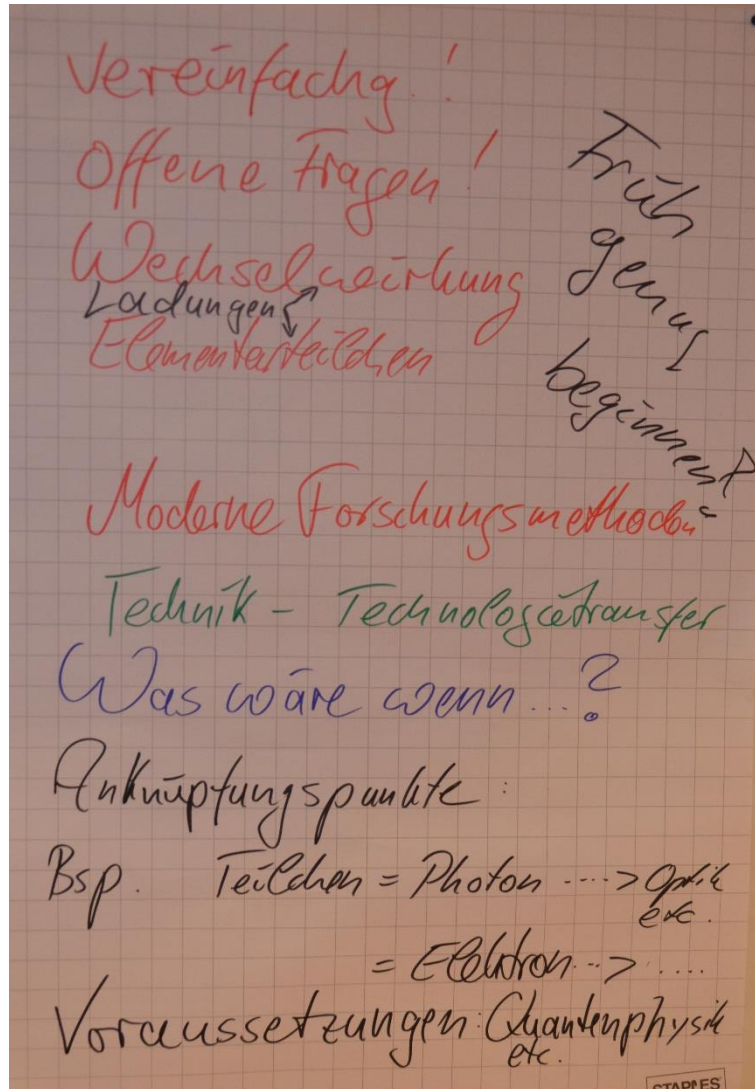 Vereinfachg.!
Offene Fragen!
Früh
genug
beginnen?
Wechselwirkung
Ladungen
Elementarteilchen
Moderne Forschungsmethoden
Technik - Technologietransfer
Was wäre wenn...?
Anknüpfungspunkte:
Bsp. Teilchen = Photon ----> Optik
etc.
= Elektron --> ....
Voraussetzungen: Quantenphysik
etc.
STAPLES